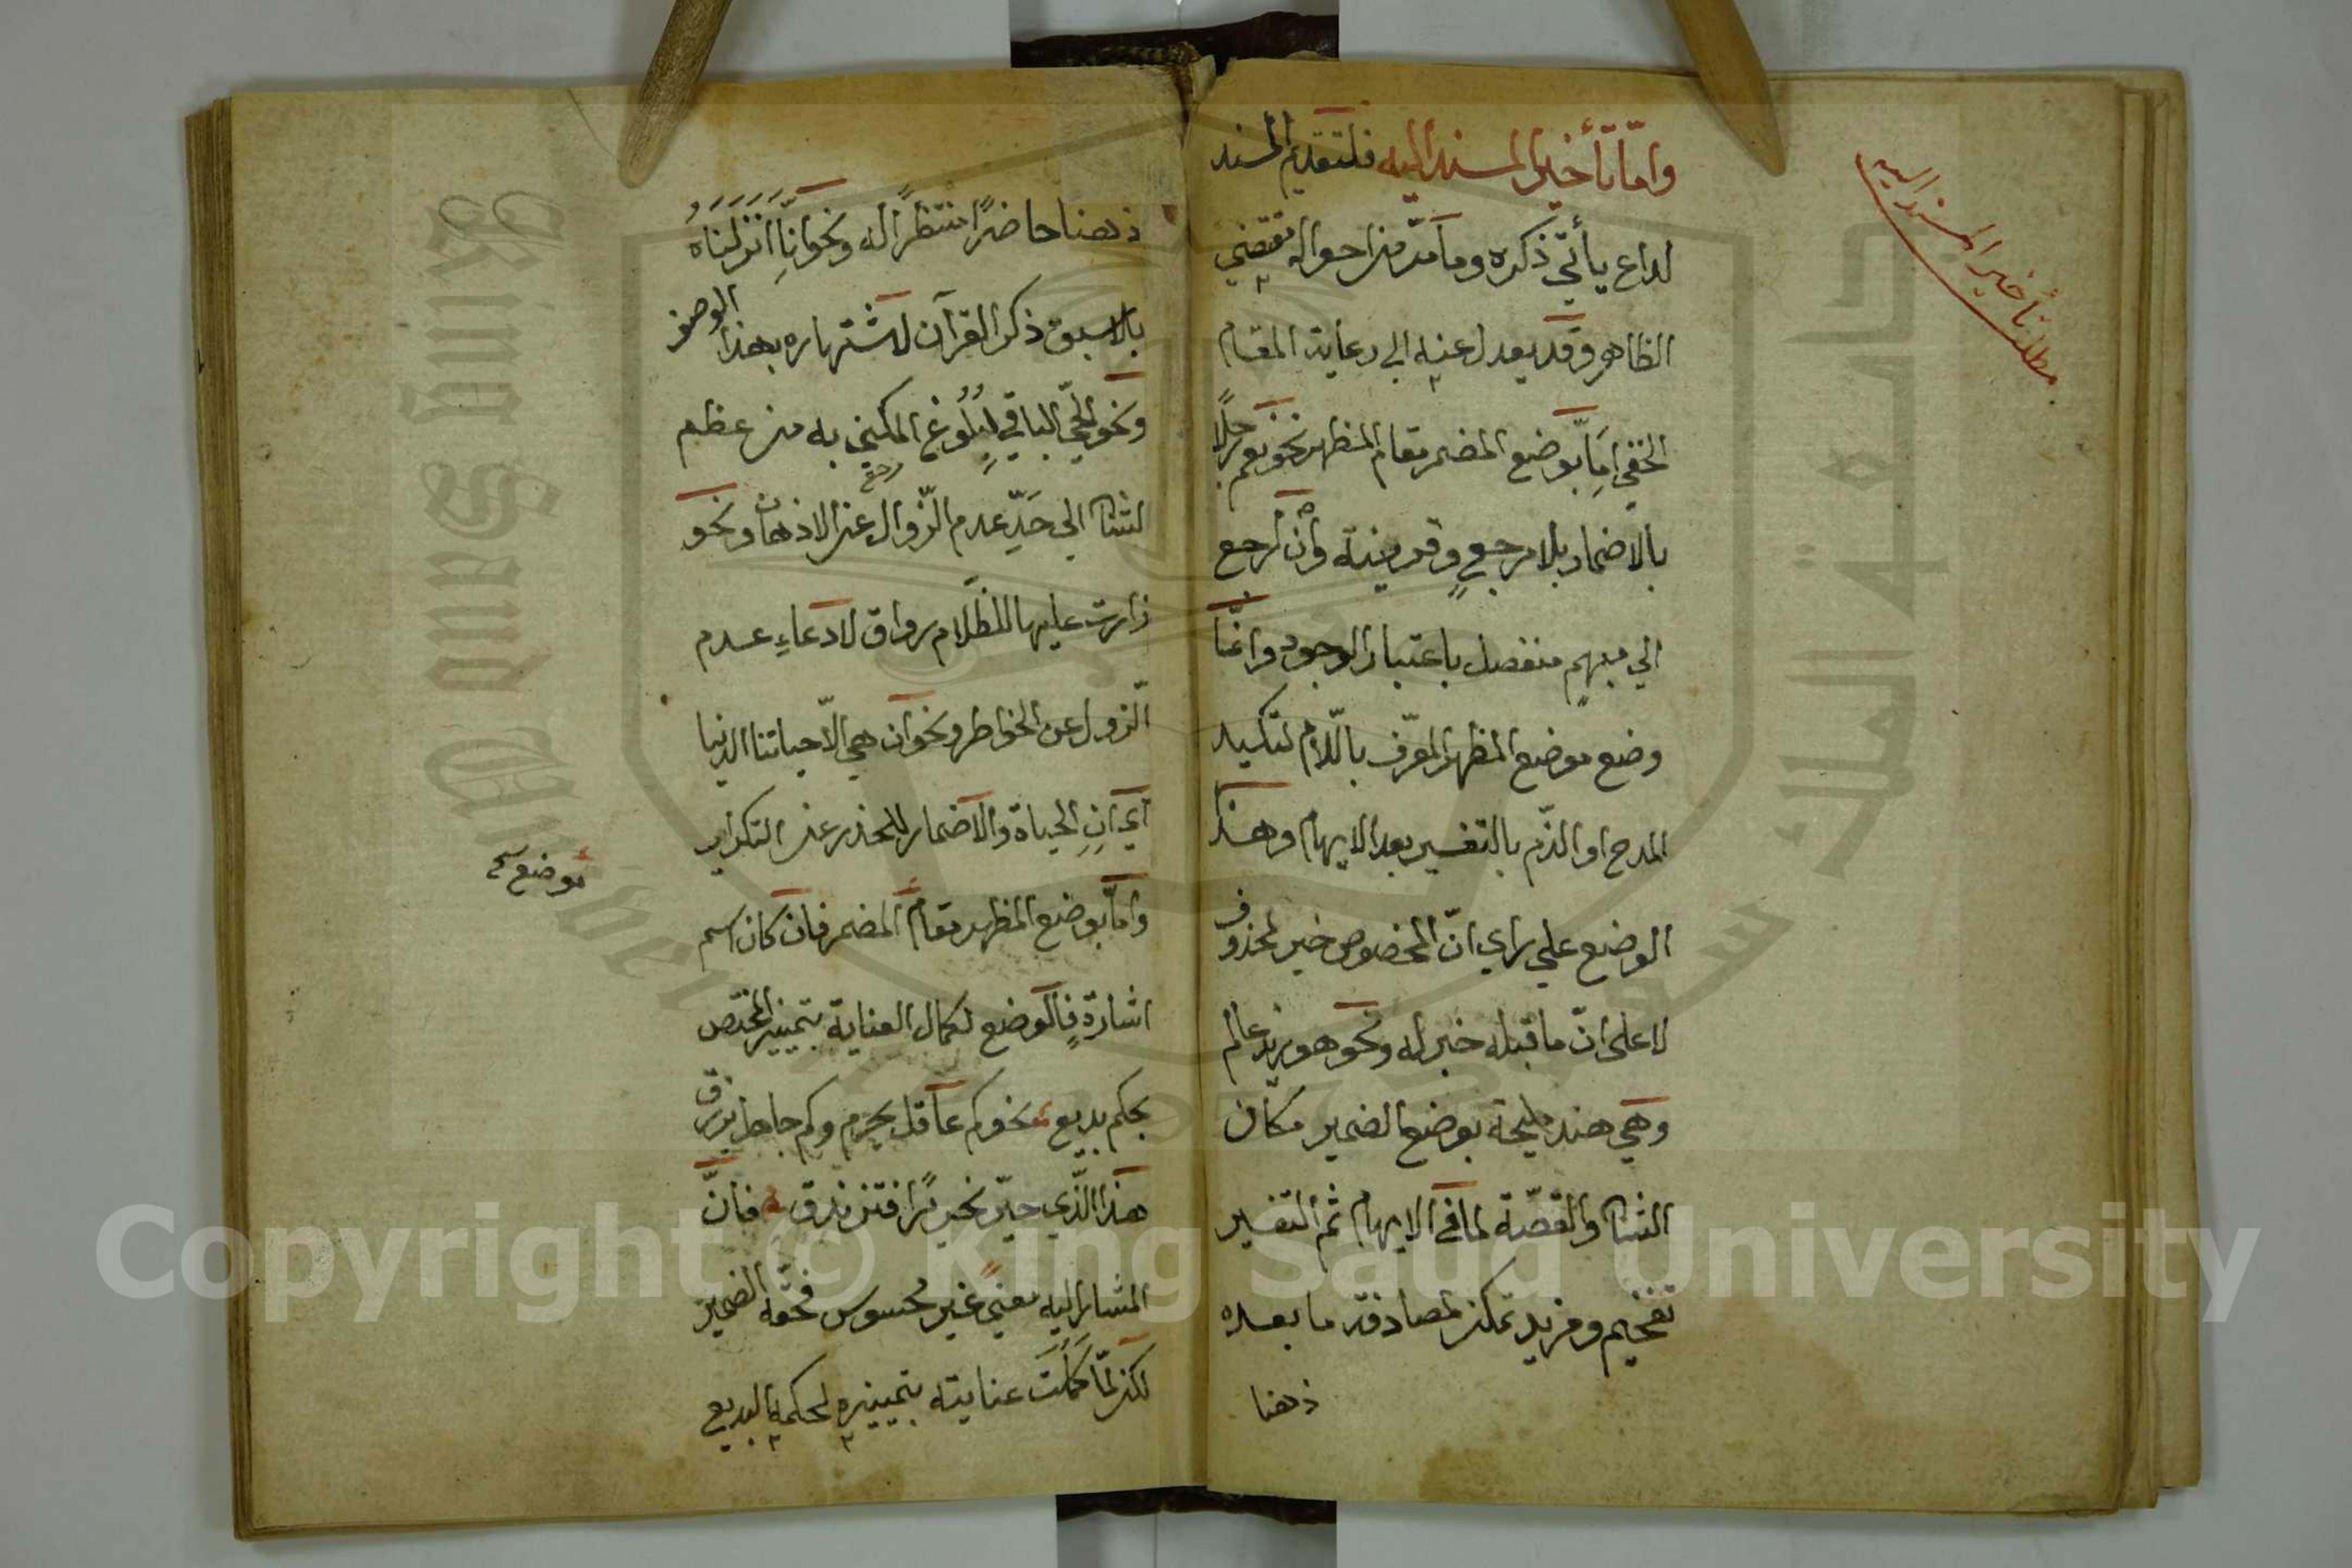 مطلب تأخير المسند اليه
وامّا تأخير المسند اليه فلتقديم المسند
لداع يأتي ذكره وما مرّ من احواله مقتضي
الظاهر وقد يعدل عنه الي رعاية المقام
الخفي امّا بوضع المضمر مقام المظهر نحو نعم رجلًا
بالاضمار بلا مرجع وقرينة وان رجع
الي مبهم منفصل باعتبار الوجود وانّما
وضع موضع المظهر المعرّف باللّام لتأكيد
المدح او الذّم بالتفسير بعد الابهام وهذا
الوضع علي راي انّ المخصوص خبر لمحذوف
لا علي انّ ما قبله خبر له ونحو هو زيد عالم
وهي هند مليحة بوضع الضمير مكان
الشان والقصّة لما في الابهام ثم التفسير
تفخيم ومزيد تمكن لمصادفة ما بعده
ذهنا
ذهنا حاضرًا منتظرًا له ونحو انّا انزلناه
بلا سبق ذكر القرآن لاشتهاره بهذا الوصف
ونحو الحيّ الباقي لبلوغ المكني به من عظم
الشان الي حدّ عدم الزّوال عن الاذهان ونحو
زارت عليها للظّلام رواق لادعاء عدم
الزّول عن الخواطر ونحو ان هي الّا حياتنا الدنيا
اي ان الحياة والاضمار للحذر عن التكرار
وامّا بوضع المظهر مقام المضمر فان كان اسم
موضع
اشارة فالوضع لكمال العناية بتمييز المختص
بحكم بديع نحو كم عاقل يحرم وكم جاهل يرزق
هذا الّذي حيّر نحريرًا فتزندق فانّ
المشار اليه معني غير محسوس فحقّه الضمير
لكن لمّا كملت عنايته بتمييزه لحكمه البديع
Copyright © King Saud University